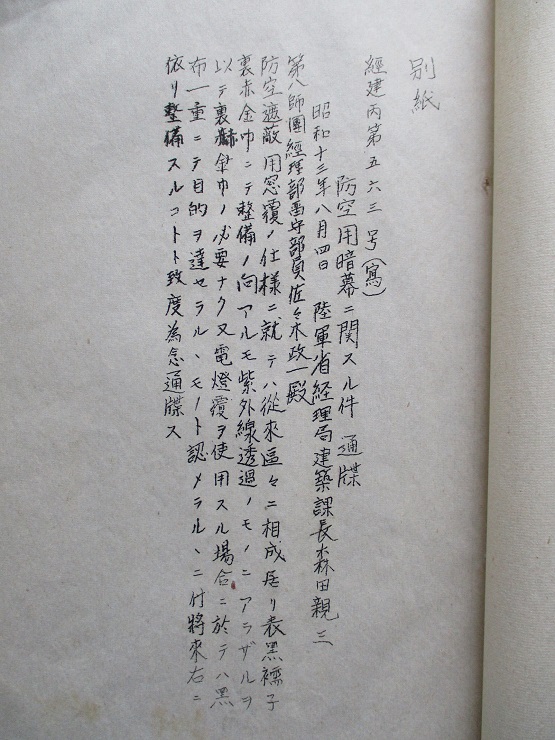 別紙
經建丙第五六三号(寫)
防空用暗幕ニ関スル件 通牒
昭和十三年八月四日 陸軍省経理局建築課長森田親三
第八師團經理部留守部員佐々木政一殿
防空遮蔽用窓覆ノ仕様ニ就テハ從来區々ニ相成居リ表黒襦子
裏赤金巾ニテ整備ノ向アルモ紫外線透過ノモノニアラザルヲ
以テ裏赫金巾ノ必要ナク又電燈覆ヲ使用スル場合ニ於テハ黒
布一重ニテ目的ヲ達セラルヽモノト認メラルヽニ付將來右ニ
依リ整備スルコトト致度為念通牒ス